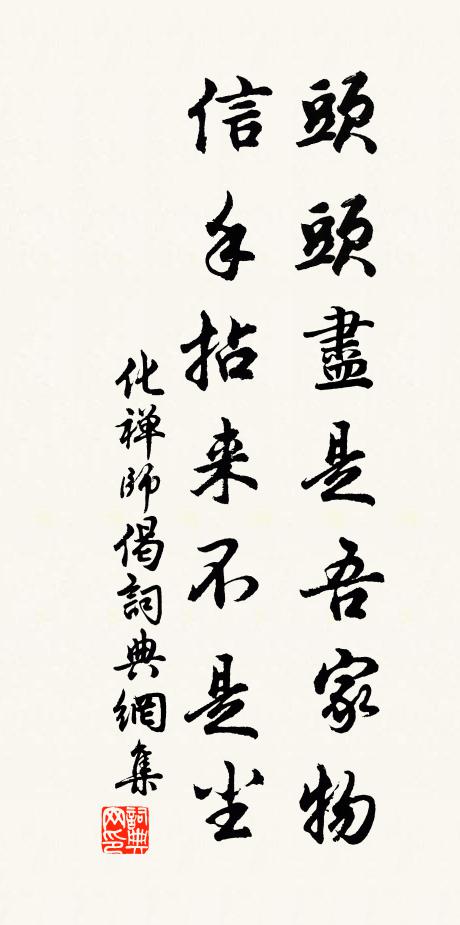 頭頭盡是吾家物
信手拈来不是尘
化禅師偈詞典網集
詞典网印